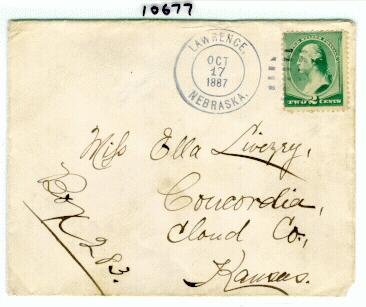 10677
LAWRENCE,
OCT
17
1887
NEBRASKA.
TWO 2 CENTS
Miss Ella Livezey,
Box 283.
Concordia,
Cloud Co.,
Kansas.